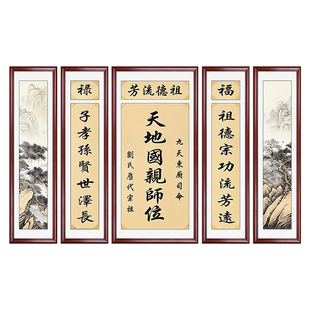 祖德流芳
福
祖德宗功流芳遠
九天東廚司命
天地國親師位
劉氏歷代宗祖
禄
子孝孫賢世澤長